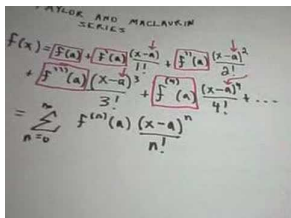 TAYLOR AND MACLAURIN
SERIES
f(x) = f(a) + f'(a) (x-a)/1! + f''(a) (x-a)²/2!
+ f'''(a) (x-a)³/3! + f⁽⁴⁾(a) (x-a)⁴/4! + ...
= ∞ Σ n=0 f⁽ⁿ⁾(a) (x-a)ⁿ/n!